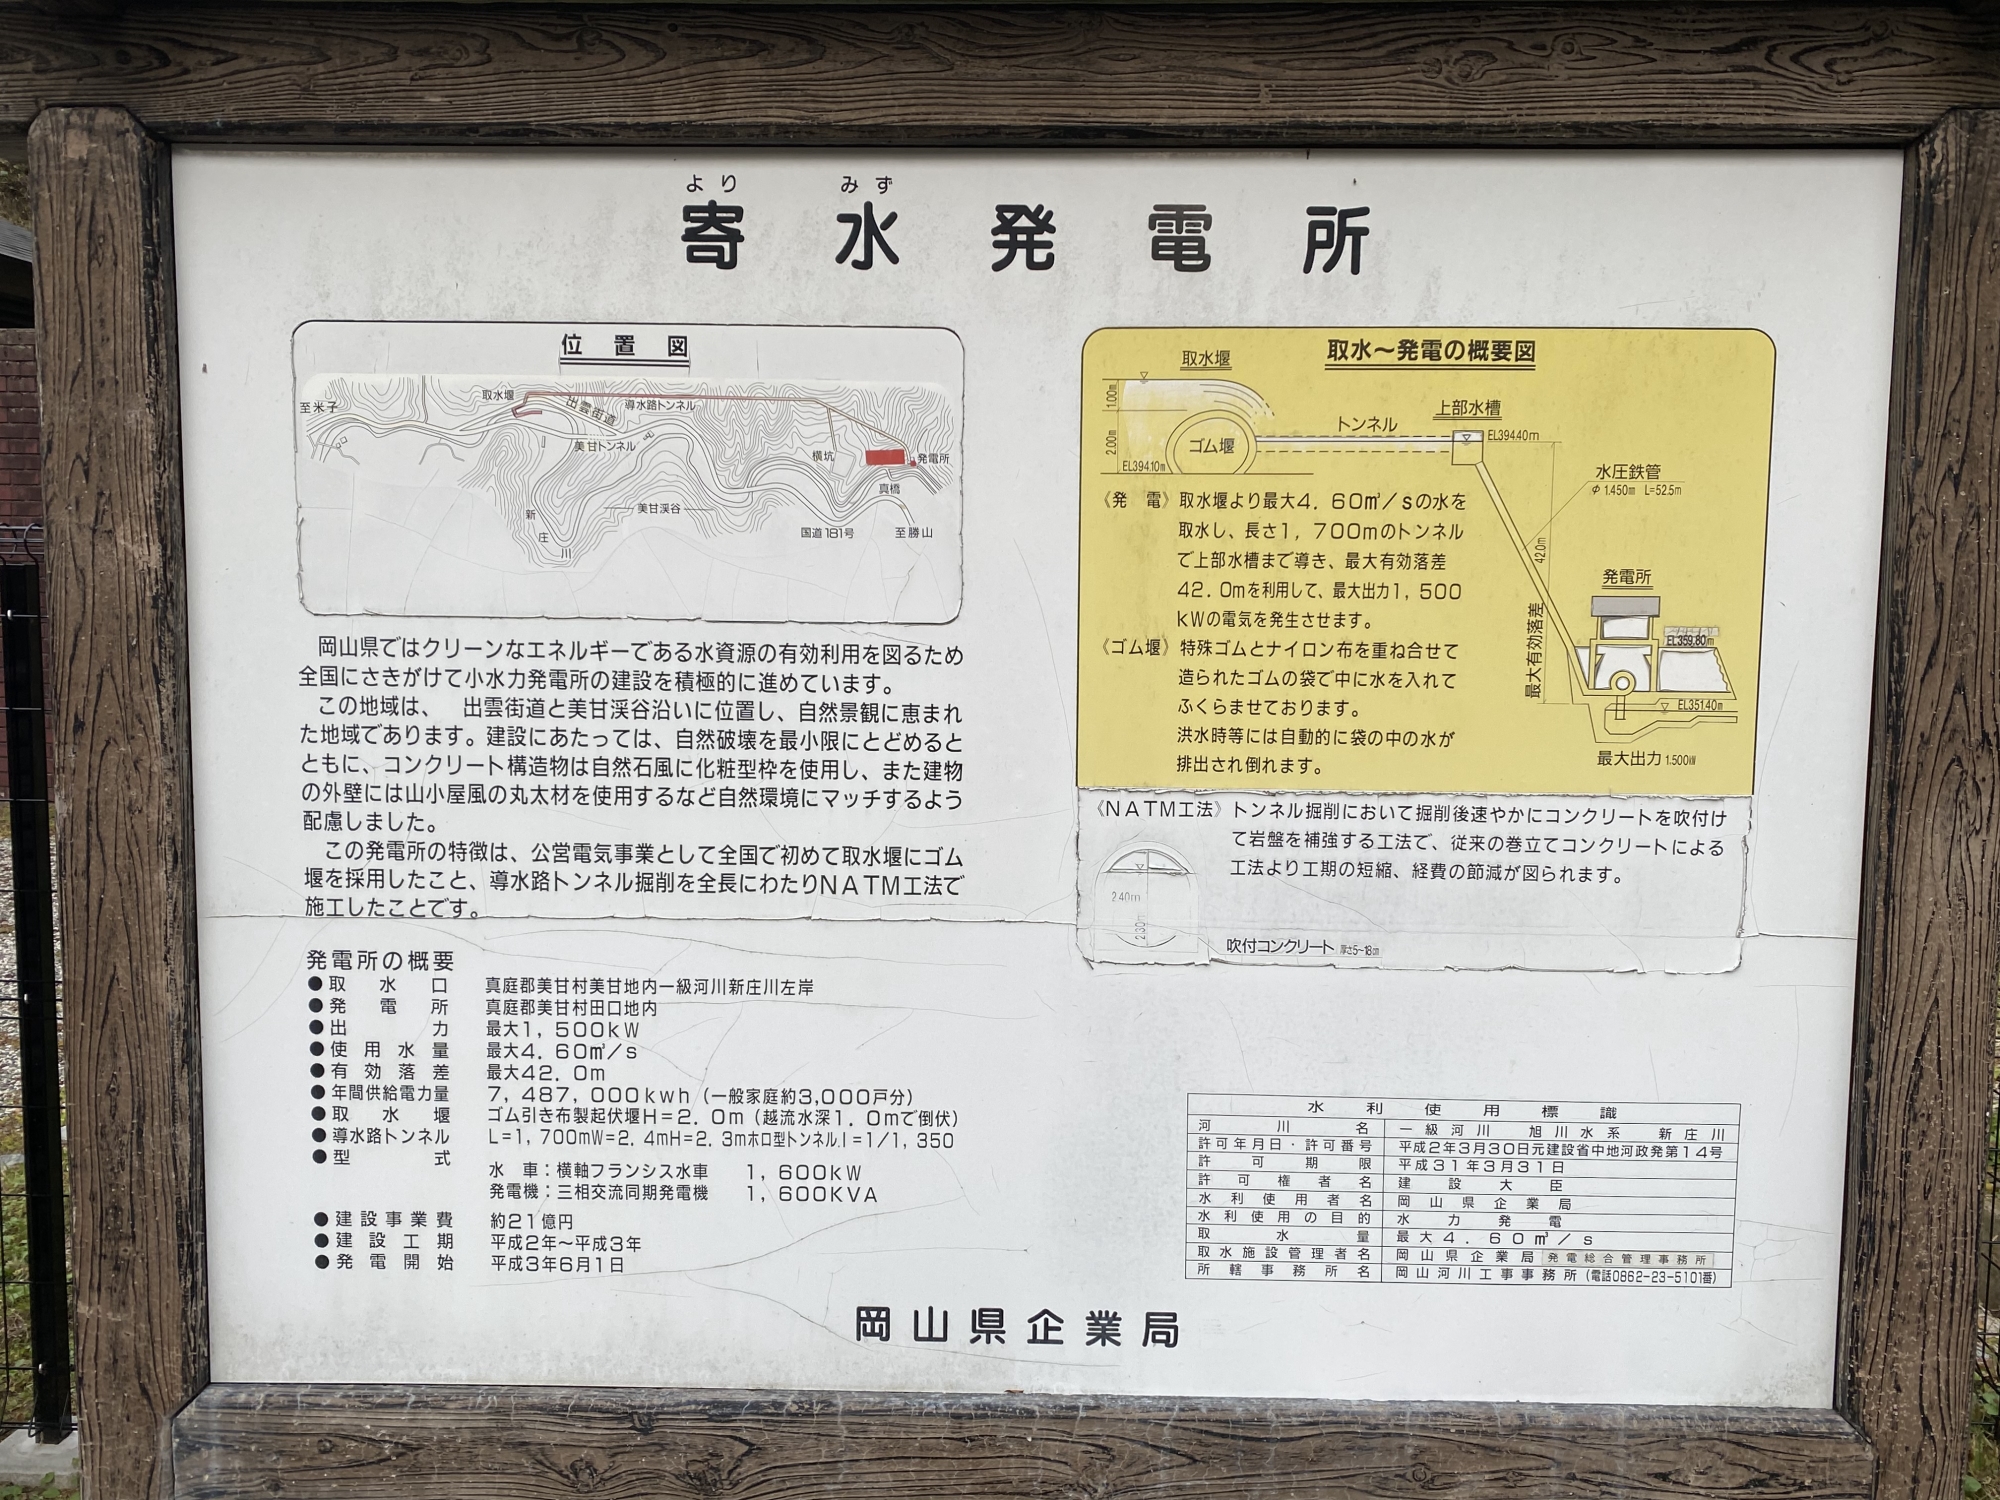 より みず
寄水発電所
位置図
至米子
取水堰
出雲街道
導水路トンネル
美甘トンネル
横坑
発電所
真橋
新庄川
美甘渓谷
国道181号
至勝山
岡山県ではクリーンなエネルギーである水資源の有効利用を図るため
全国にさきがけて小水力発電所の建設を積極的に進めています。
この地域は、 出雲街道と美甘渓谷沿いに位置し、自然景観に恵まれ
た地域であります。建設にあたっては、自然破壊を最小限にとどめると
ともに、コンクリート構造物は自然石風に化粧型枠を使用し、また建物
の外壁には山小屋風の丸太材を使用するなど自然環境にマッチするよう
配慮しました。
この発電所の特徴は、公営電気事業として全国で初めて取水堰にゴム
堰を採用したこと、導水路トンネル掘削を全長にわたりNATM工法で
施工したことです。
発電所の概要
●取水口 真庭郡美甘村美甘地内一級河川新庄川左岸
●発電所 真庭郡美甘村田口地内
●出力 最大1,500kW
●使用水量 最大4.60㎥/s
●有効落差 最大42.0m
●年間供給電力量 7,487,000kwh(一般家庭約3,000戸分)
●取水堰 ゴム引き布製起伏堰H=2.0m(越流水深1.0mで倒伏)
●導水路トンネル L=1,700mW=2.4mH=2.3mホロ型トンネル.I=1/1,350
●型式
水車:横軸フランシス水車 1,600KW
発電機:三相交流同期発電機 1,600KVA
●建設事業費 約21億円
●建設工期 平成2年〜平成3年
●発電開始 平成3年6月1日
取水〜発電の概要図
取水堰
1.00m
2.00m
ゴム堰
EL394.10m
トンネル
上部水槽
EL394.40m
水圧鉄管
φ1.450m L=52.5m
42.0m
最大有効落差
発電所
EL359.80m
EL351.40m
最大出力1.500kW
《発電》取水堰より最大4.60㎥/sの水を
取水し、長さ1,700mのトンネル
で上部水槽まで導き、最大有効落差
42.0mを利用して、最大出力1,500
kWの電気を発生させます。
《ゴム堰》特殊ゴムとナイロン布を重ね合せて
造られたゴムの袋で中に水を入れて
ふくらませております。
洪水時等には自動的に袋の中の水が
排出され倒れます。
《NATM工法》トンネル掘削において掘削後速やかにコンクリートを吹付け
て岩盤を補強する工法で、従来の巻立てコンクリートによる
工法より工期の短縮、経費の節減が図られます。
2.40m
2.30m
吹付コンクリート 厚さ5〜18cm
水利使用標識
河川名 一級河川 旭川水系 新庄川
許可年月日・許可番号 平成2年3月30日元建設省中地河政発第14号
許可期限 平成31年3月31日
許可権者名 建設大臣
水利使用者名 岡山県企業局
水利使用の目的 水力発電
取水量 最大4.60㎥/s
取水施設管理者名 岡山県企業局発電総合管理事務所
所轄事務所名 岡山河川工事事務所(電話0862-23-5101番)
岡山県企業局